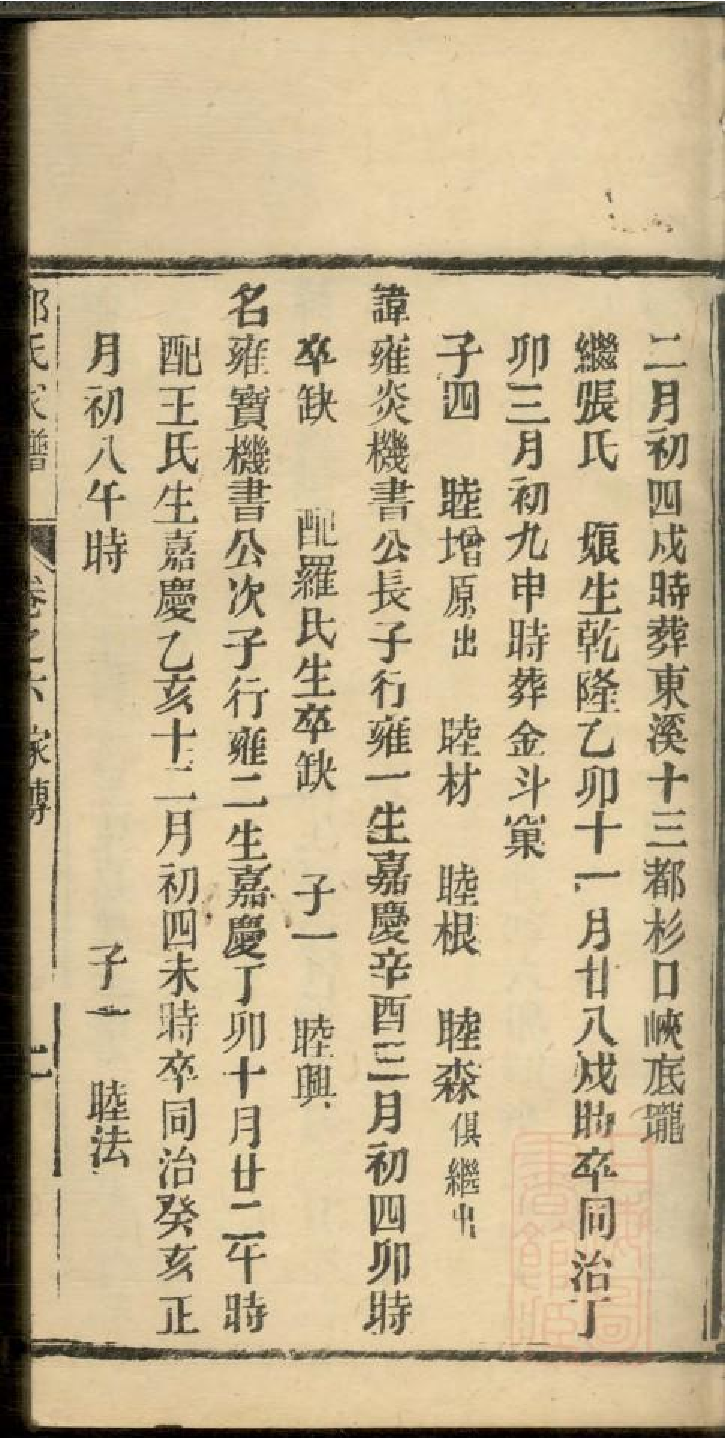 二月初四戌時葬東溪十三都杉口峽底壠
繼張氏 娘生乾隆乙卯十一月廿八戌時卒同治丁
卯三月初九申時葬金斗窠
子四 睦增原出 睦材 睦根 睦森俱繼出
諱雍炎機書公長子行雍一生嘉慶辛酉三月初四卯時
卒缺 配羅氏生卒缺 子一 睦興
名雍寶機書公次子行雍二生嘉慶丁卯十月廿二午時
配王氏生嘉慶乙亥十二月初四未時卒同治癸亥正
月初八午時 子一 睦法
氏家譜 卷之六 家傳